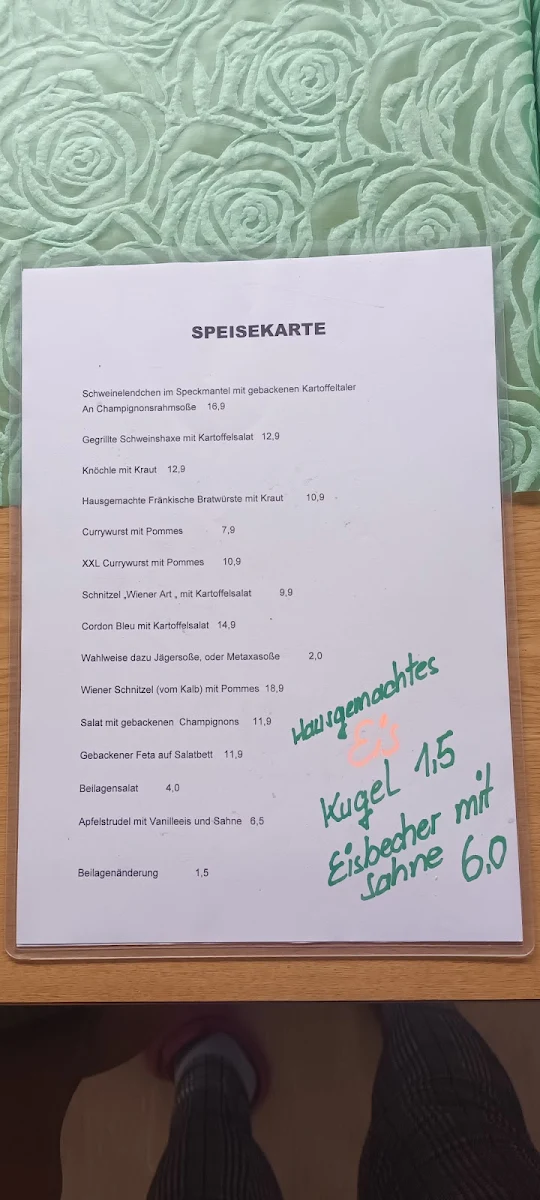 SPEISEKARTE
Schweinelendchen im Speckmantel mit gebackenen Kartoffeltaler
An Champignonsrahmsoße 16,9
Gegrillte Schweinshaxe mit Kartoffelsalat 12,9
Knöchle mit Kraut 12,9
Hausgemachte Fränkische Bratwürste mit Kraut 10,9
Currywurst mit Pommes 7,9
XXL Currywurst mit Pommes 10,9
Schnitzel „Wiener Art „ mit Kartoffelsalat 9,9
Cordon Bleu mit Kartoffelsalat 14,9
Wahlweise dazu Jägersoße, oder Metaxasoße 2,0
Wiener Schnitzel (vom Kalb) mit Pommes 18,9
Salat mit gebackenen Champignons 11,9
Gebackener Feta auf Salatbett 11,9
Beilagensalat 4,0
Apfelstrudel mit Vanilleeis und Sahne 6,5
Beilagenänderung 1,5
Hausgemachtes
Eis
Kugel 1,5
Eisbecher mit
Sahne 6,0